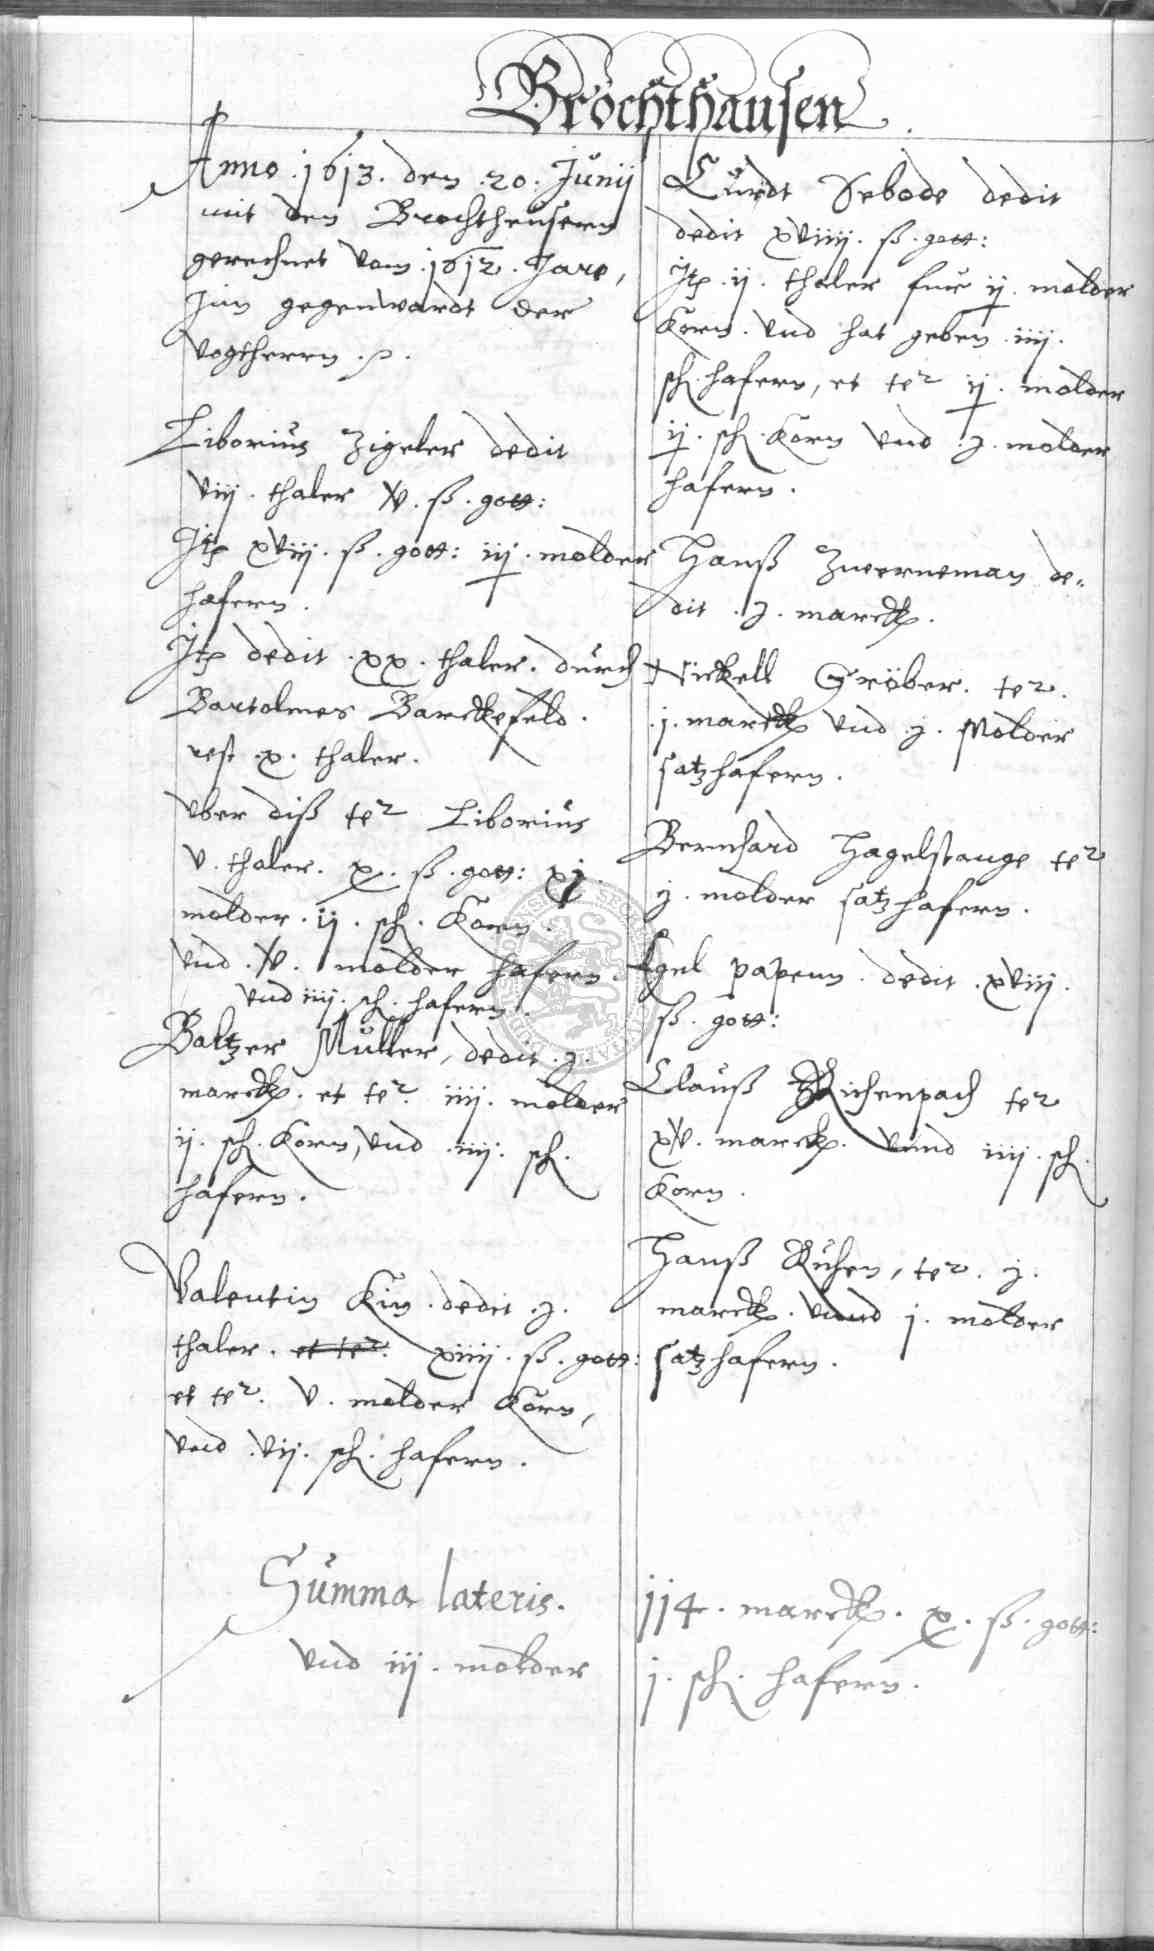 Brochthausen
Anno .1613. den .20. Junij
mit den Brochtheusern
gerechnet vom .1612. Jare,
Jnn gegenwardt der
vogtherrn.
Liborius Zigeler dedit
viij. thaler v. ß. gott:
Jtp xviij. ß. gott: iij. molder
hafern.
Jtp dedit .xx. thaler. durch
Bartolmes Barckefeld.
rest .x. thaler.
Vber diß ter Liborius
v. thaler. x. ß. gott: xj.
molder. ij. sch. Korn.
vnd .v. molder hafern.
vnd iiij. sch. hafern.
Baltzer Müller, dedit .j.
marck. et ter. iiij. molder
ij. sch. Korn, vnd .iiij. sch.
hafern.
Valentin Kin .dedit .j.
thaler. et ter. xiiij. ß. gott:
et ter. v. molder Korn,
vnd .vij. sch. hafern.
Curdt Sebode dedit
dedit xviiij. ß. gott:
Jtp .ij. thaler fur ij. molder
Korn. vnd hat geben .iiij.
sch. hafern, et ter ij. molder
ij. sch. Korn vnd .j. molder
hafern.
Hanß Zweerneman de-
dit .j. marck.
Nickell Gröber. ter.
.j. marck vnd .j. Molder
satzhafern.
Bernhard Hagelstange ter
j. molder satzhafern.
papenn. dedit .xviij.
ß. gott:
Clauß Richenpach ter
xv. marck. vnnd iiij. sch.
Korn.
Hanß Kuhen, ter. j.
marck. vnnd j. molder
satzhafern.
Summa lateris. 114. marck. x. ß. gott:
vnd iij. molder j. sch. hafern.